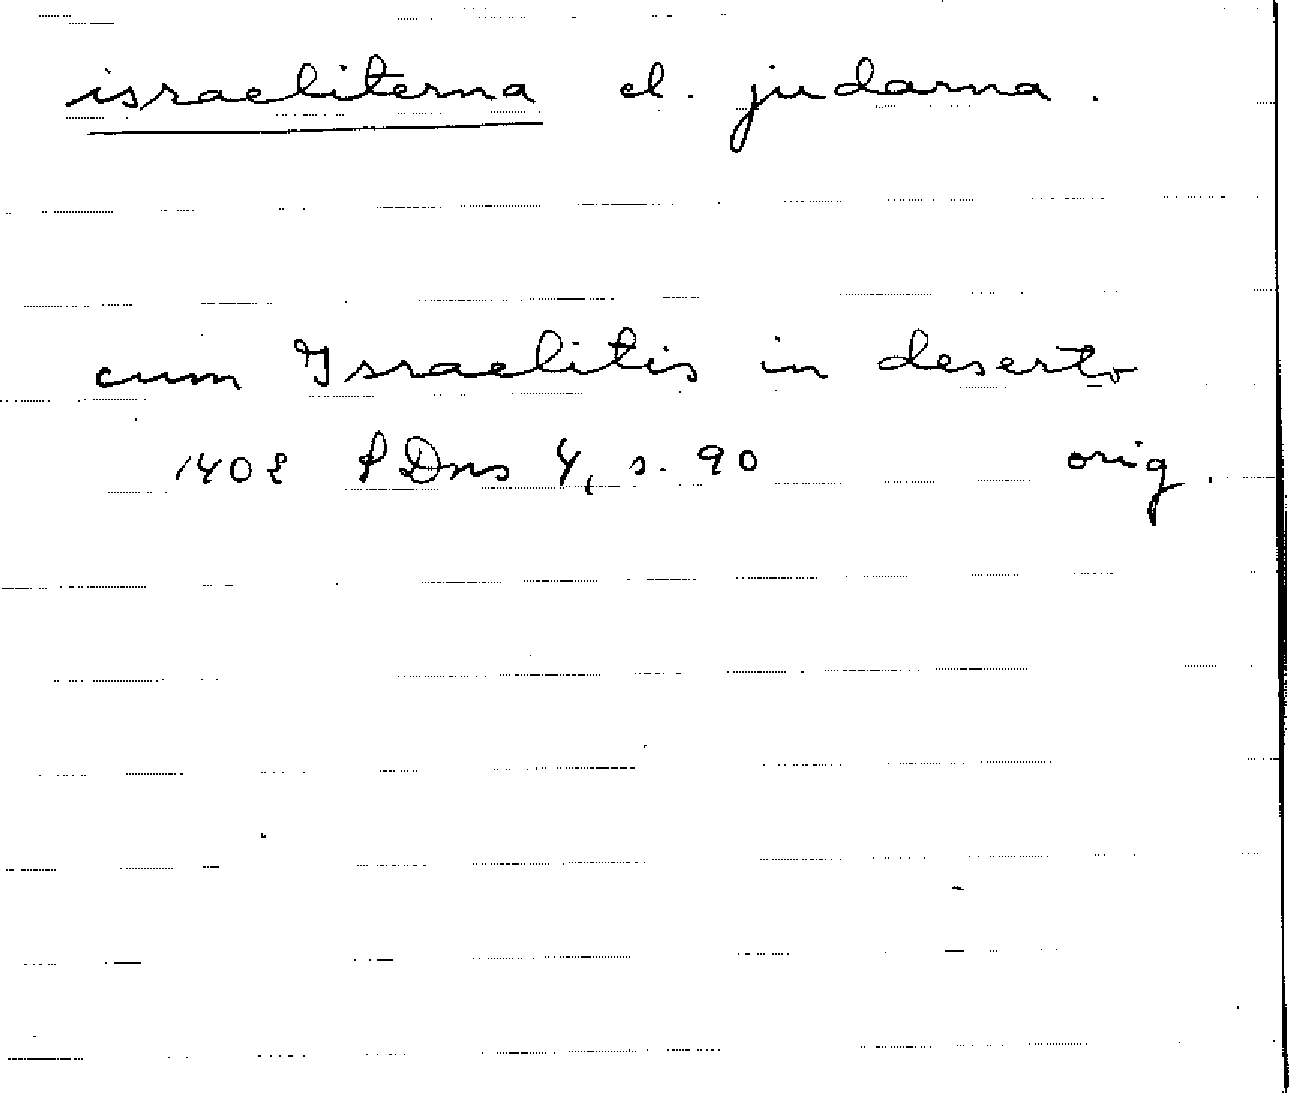 israeliterna el. judarna.
cum Israelitis in deserto
1402 PDns 4, s. 90 orig.